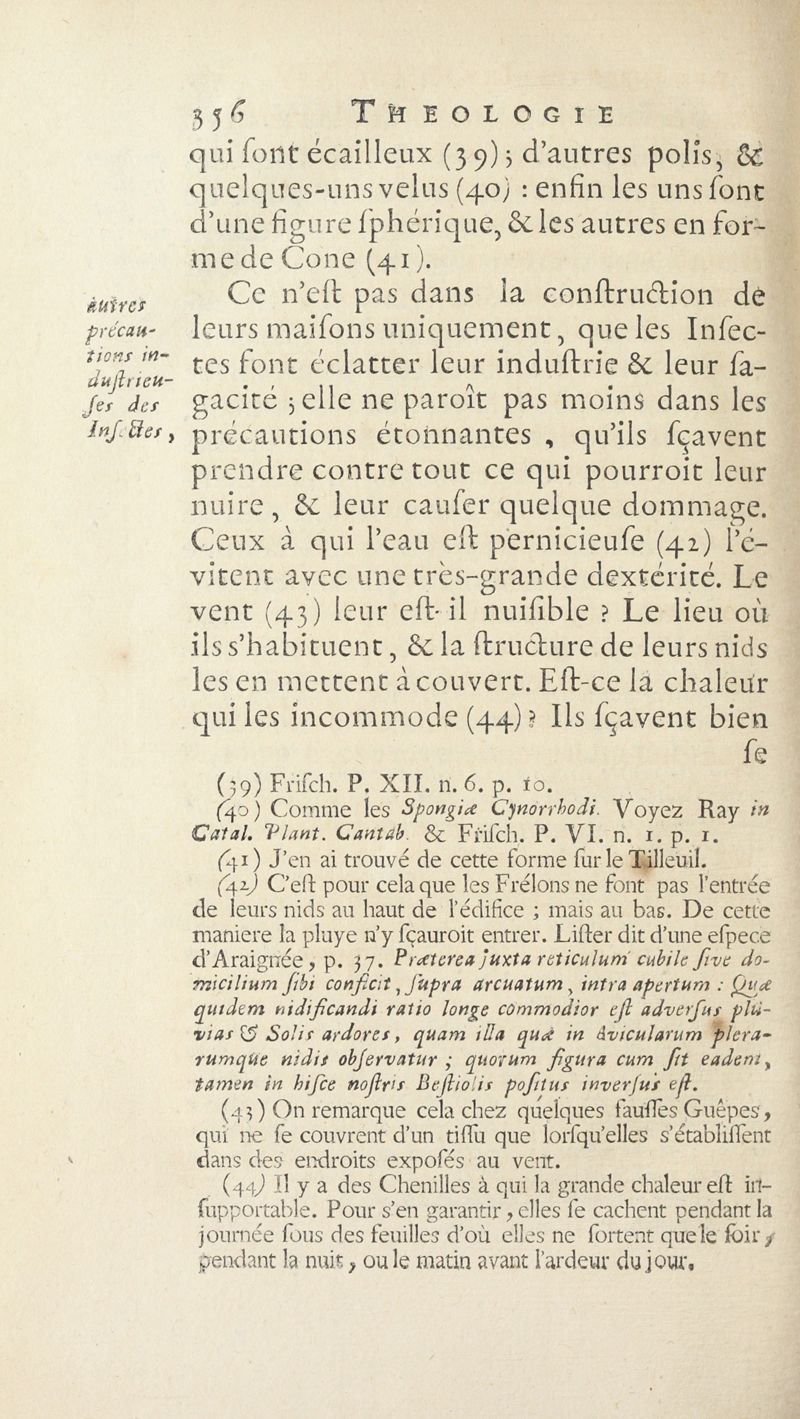 356 THEOLOGIE
qui ſont écailleux (39); d'autres polis, &
quelques-uns velus (40) : enfin les uns ſont
d'une figure ſphérique, & les autres en for-
me de Cone (41).
Ce n'eſt pas dans la conſtruction de
leurs maiſons uniquement, que les Inſec-
tes font éclatter leur induſtrie & leur ſa-
gacité ; elle ne paroît pas moins dans les
précautions étonnantes , qu'ils ſçavent
prendre contre tout ce qui pourroit leur
nuire , & leur cauſer quelque dommage.
Ceux à qui l'eau eſt pernicieuſe (42) l'é-
vitent avec une très-grande dextérité. Le
vent (43) leur eſt-il nuiſible ? Le lieu où
ils s'habituent , & la ſtructure de leurs nids
les en mettent à couvert. Eſt-ce la chaleur
qui les incommode (44) ? Ils ſçavent bien
ſe
autres
précau-
tions in-
duſtrieu-
ſes des
Inſectes,
(39) Friſch. P. XII. n. 6. p. 10.
(40) Comme les Spongiæ Cynorrhodi. Voyez Ray in
Catal. Plant. Cantab. & Friſch. P. VI. n. 1. p. 1.
(41) J'en ai trouvé de cette forme ſur le Tilleuil.
(42) C'eſt pour cela que les Frélons ne font pas l'entrée
de leurs nids au haut de l'édifice ; mais au bas. De cette
maniere la pluye n'y ſçauroit entrer. Liſter dit d'une eſpece
d'Araignée, p. 37. Præterea juxta reticulum cubile ſive do-
micilium ſibi conficit, ſupra arcuatum, intra apertum : Quæ
quidem nidificandi ratio longe commodior eſt adverſus plu-
vias & Solis ardores, quam illa quæ in Avicularum plera-
rumque nidis obſervatur ; quorum figura cum ſit eadem,
tamen in hiſce noſtris Beſtiolis poſitus inverſus eſt.
(43) On remarque cela chez quelques fauſſes Guêpes,
qui ne ſe couvrent d'un tiſſu que lorſqu'elles s'établiſſent
dans des endroits expoſés au vent.
(44) Il y a des Chenilles à qui la grande chaleur eſt in-
ſupportable. Pour s'en garantir, elles ſe cachent pendant la
journée ſous des feuilles d'où elles ne ſortent que le ſoir,
pendant la nuit, ou le matin avant l'ardeur du jour.